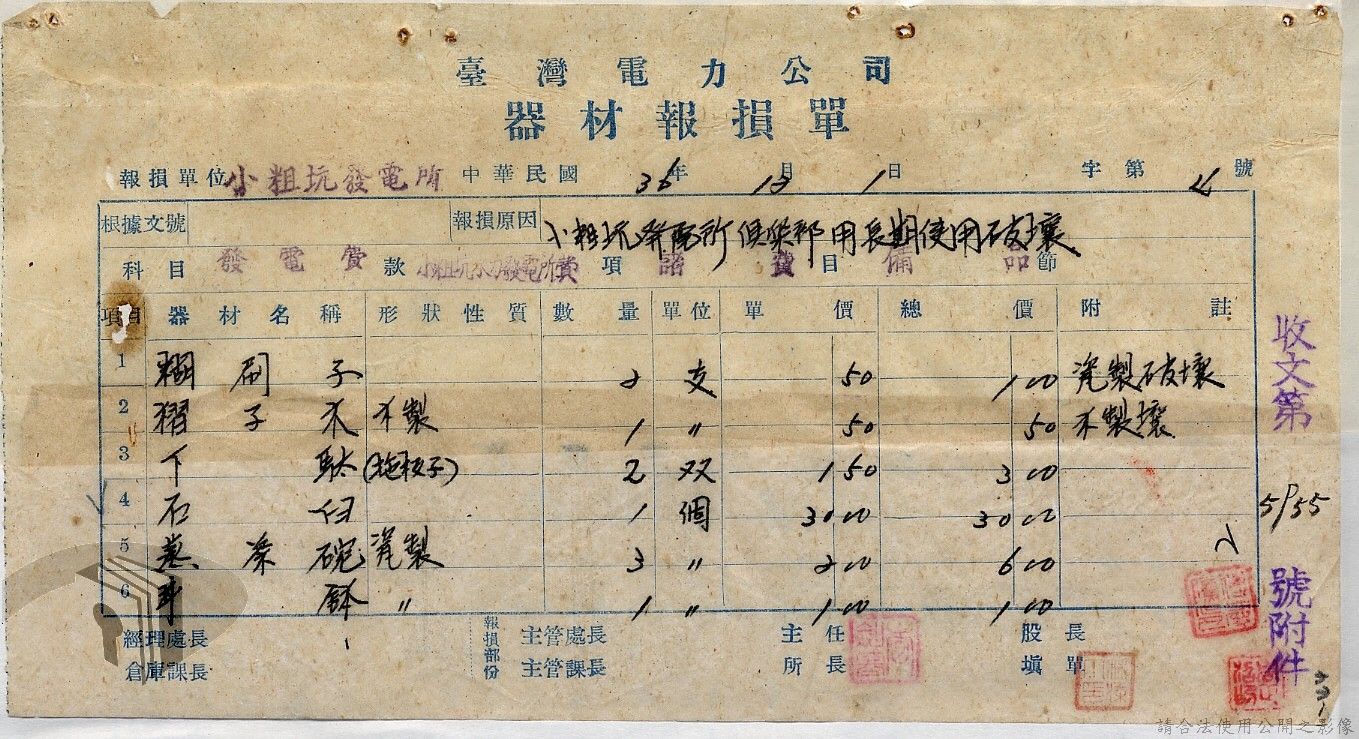 臺灣電力公司
器材報損單
報損單位 小粗坑發電所 中華民國 36年 12月 1日 字第 號
根據文號 報損原因 小粗坑發電所俱樂部用長期使用破壞
科目 發電費 款 小粗坑水力發電所費 項 諸費 目 備品 節
項目 器材名稱 形狀性質 數量 單位 單價 總價 附註
1 糊刷子 2 支 50 1 00 瓷製破壞
2 摺子木 木製 1 〃 50 50 木製壞
3 下駄 (拖板子) 2 双 1 50 3 00
4 石臼 1 個 30 00 30 00
5 蒸 碗 瓷製 3 〃 2 00 6 00
6 鉢 〃 1 〃 1 00 1 00
經理處長 報損部份 主管處長 主任 股長
倉庫課長 主管課長 所長 填單
收文第
5955
號附件
請合法使用公開之影像